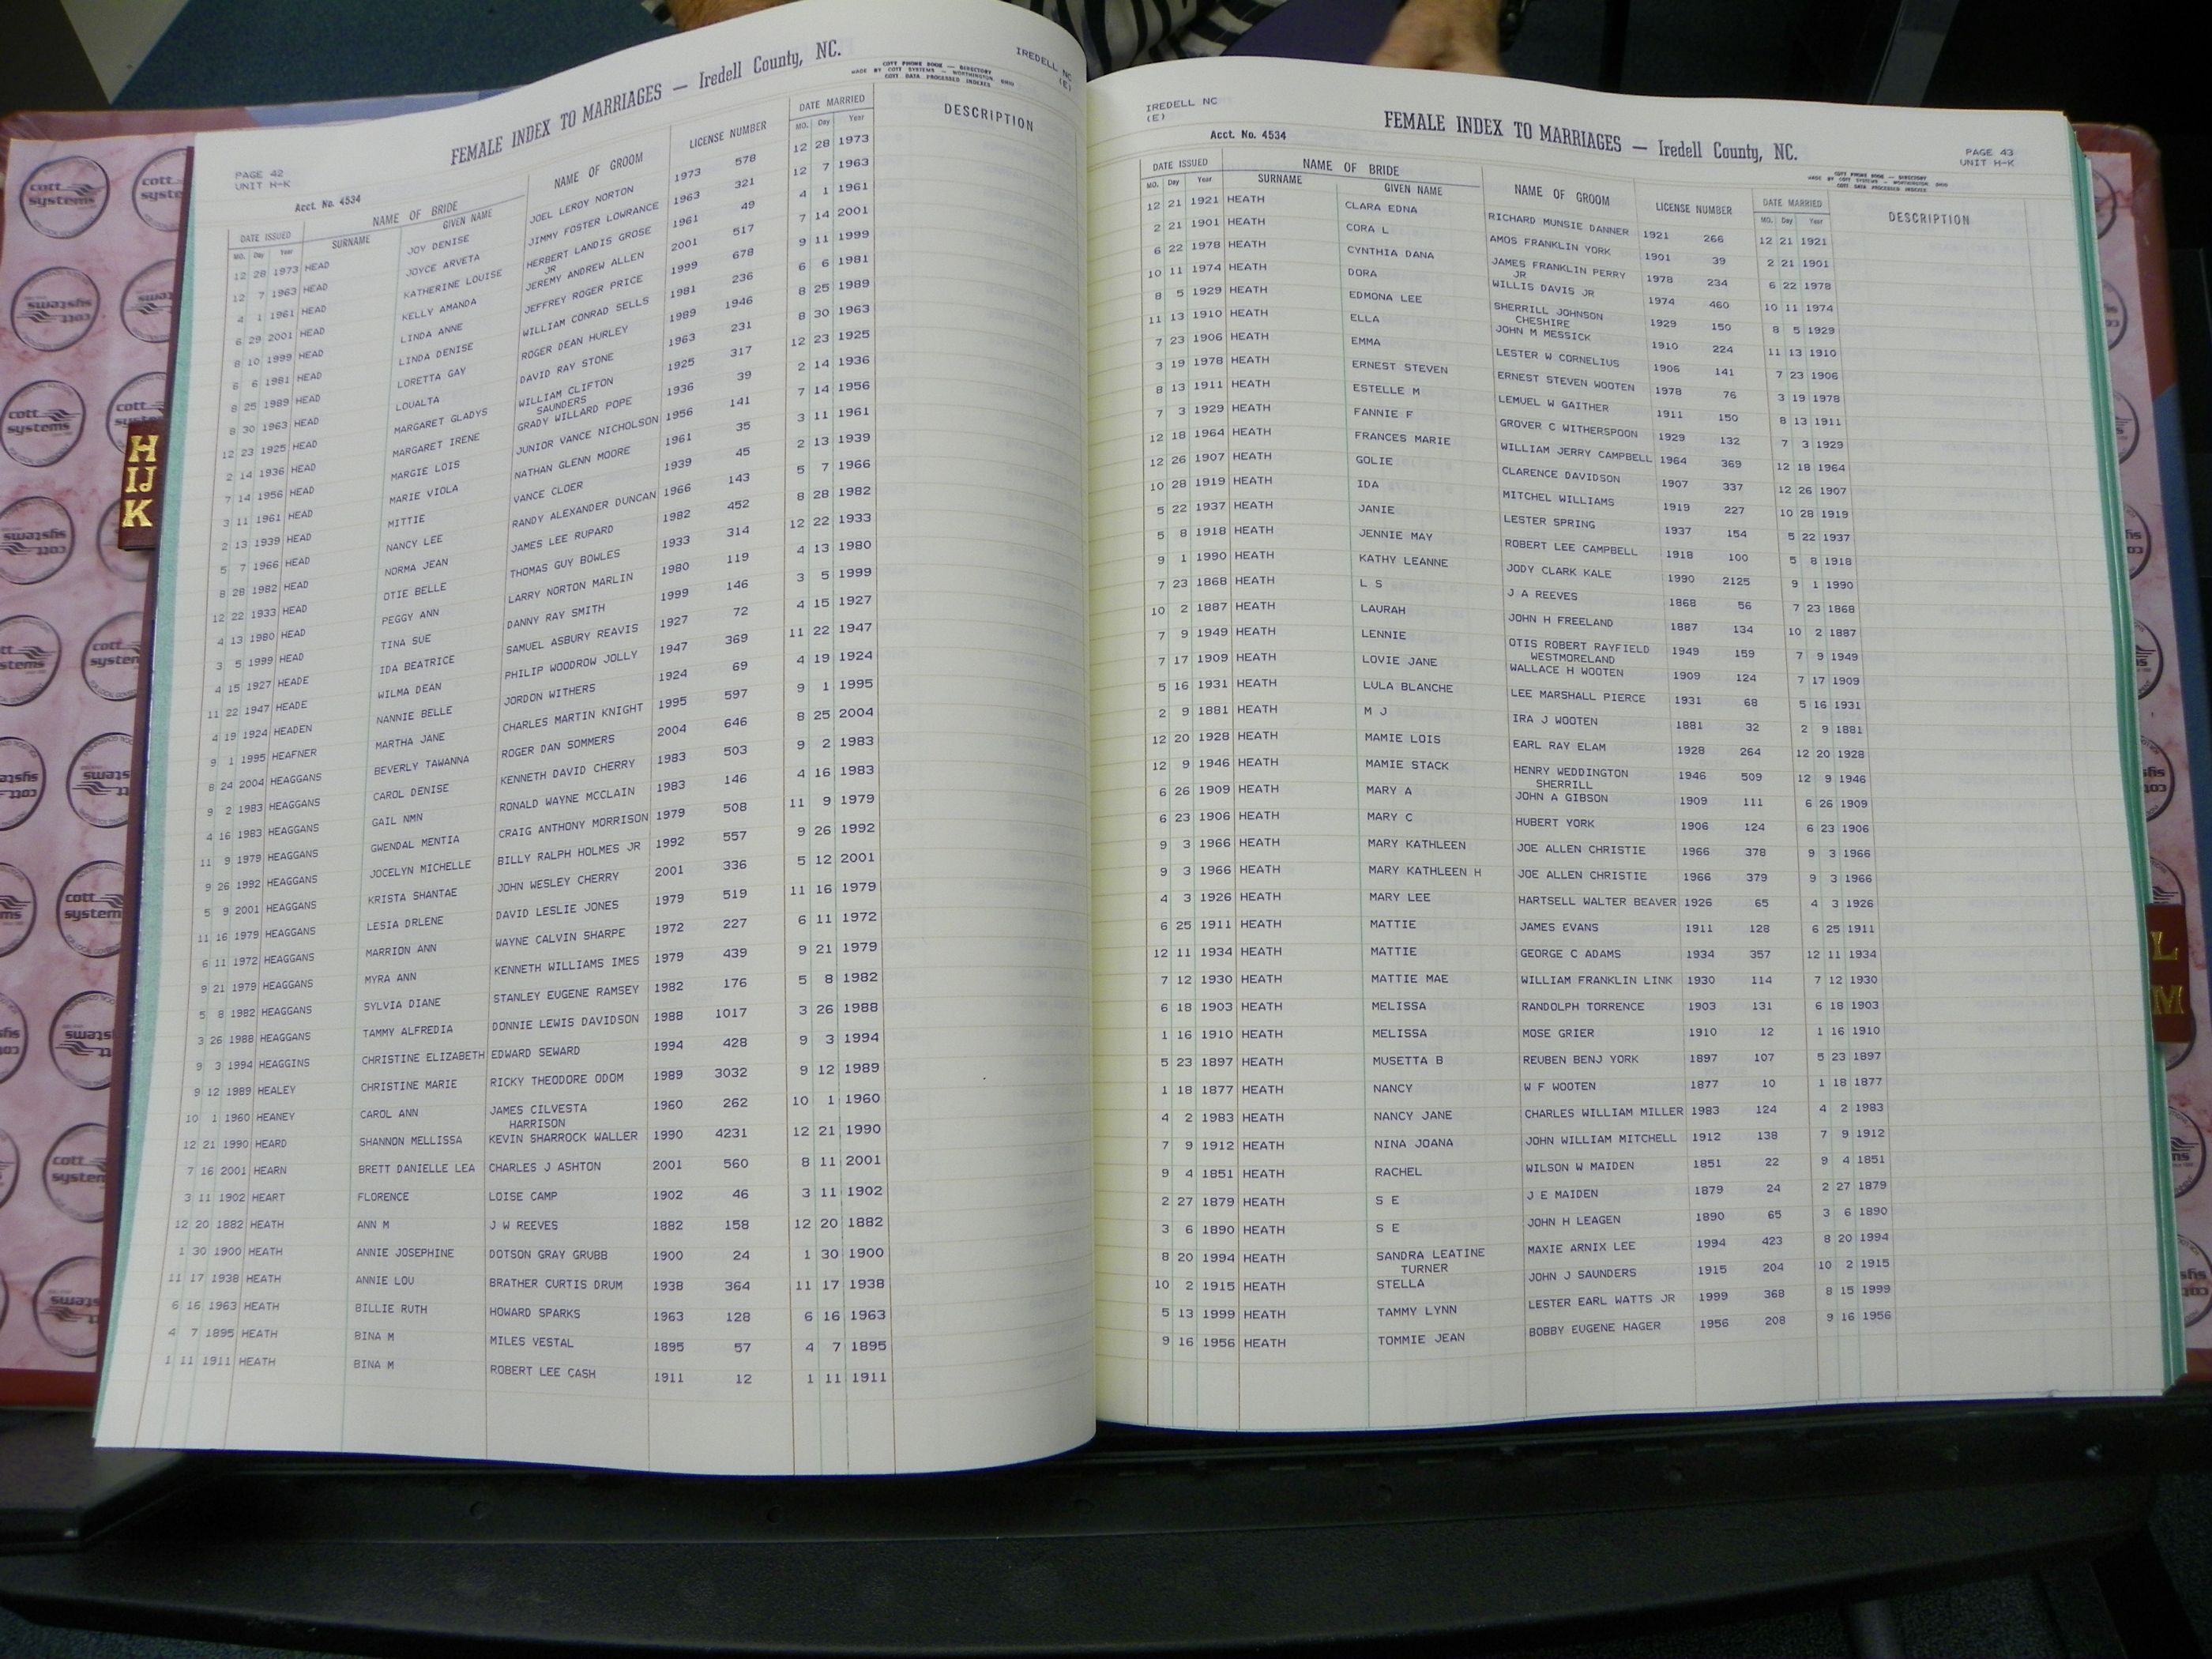 PAGE 42
UNIT H-K
FEMALE INDEX TO MARRIAGES — Iredell County, NC.
COTT PHONE BOOK — DIRECTORY
MADE BY COTT SYSTEMS — WORTHINGTON OHIO
COTT DATA PROCESSED INDEXES
IREDELL NC
(E)
Acct. No. 4534
DATE ISSUED NAME OF BRIDE NAME OF GROOM LICENSE NUMBER DATE MARRIED DESCRIPTION
MO. Day Year SURNAME GIVEN NAME MO. Day Year
12 28 1973 HEAD JOY DENISE JOEL LEROY NORTON 1973 578 12 28 1973
12 7 1963 HEAD JOYCE ARVETA JIMMY FOSTER LOWRANCE 1963 321 12 7 1963
4 1 1961 HEAD KATHERINE LOUISE HERBERT LANDIS GROSE 1961 49 4 1 1961
JR
6 29 2001 HEAD KELLY AMANDA JEREMY ANDREW ALLEN 2001 517 7 14 2001
8 10 1999 HEAD LINDA ANNE JEFFREY ROGER PRICE 1999 678 9 11 1999
6 6 1981 HEAD LINDA DENISE WILLIAM CONRAD SELLS 1981 236 6 6 1981
8 25 1989 HEAD LORETTA GAY ROGER DEAN HURLEY 1989 1946 8 25 1989
8 30 1963 HEAD LOUALTA DAVID RAY STONE 1963 231 8 30 1963
12 23 1925 HEAD MARGARET GLADYS WILLIAM CLIFTON 1925 317 12 23 1925
SAUNDERS
2 14 1936 HEAD MARGARET IRENE GRADY WILLARD POPE 1936 39 2 14 1936
7 14 1956 HEAD MARGIE LOIS JUNIOR VANCE NICHOLSON 1956 141 7 14 1956
3 11 1961 HEAD MARIE VIOLA NATHAN GLENN MOORE 1961 35 3 11 1961
2 13 1939 HEAD MITTIE VANCE CLOER 1939 45 2 13 1939
5 7 1966 HEAD NANCY LEE RANDY ALEXANDER DUNCAN 1966 143 5 7 1966
8 28 1982 HEAD NORMA JEAN JAMES LEE RUPARD 1982 452 8 28 1982
12 22 1933 HEAD OTIE BELLE THOMAS GUY BOWLES 1933 314 12 22 1933
4 13 1980 HEAD PEGGY ANN LARRY NORTON MARLIN 1980 119 4 13 1980
3 5 1999 HEAD TINA SUE DANNY RAY SMITH 1999 146 3 5 1999
4 15 1927 HEADE IDA BEATRICE SAMUEL ASBURY REAVIS 1927 72 4 15 1927
11 22 1947 HEADE WILMA DEAN PHILIP WOODROW JOLLY 1947 369 11 22 1947
4 19 1924 HEADEN NANNIE BELLE JORDON WITHERS 1924 69 4 19 1924
9 1 1995 HEAFNER MARTHA JANE CHARLES MARTIN KNIGHT 1995 597 9 1 1995
8 24 2004 HEAGGANS BEVERLY TAWANNA ROGER DAN SOMMERS 2004 646 8 25 2004
9 2 1983 HEAGGANS CAROL DENISE KENNETH DAVID CHERRY 1983 503 9 2 1983
4 16 1983 HEAGGANS GAIL NMN RONALD WAYNE MCCLAIN 1983 146 4 16 1983
11 9 1979 HEAGGANS GWENDAL MENTIA CRAIG ANTHONY MORRISON 1979 508 11 9 1979
9 26 1992 HEAGGANS JOCELYN MICHELLE BILLY RALPH HOLMES JR 1992 557 9 26 1992
5 9 2001 HEAGGANS KRISTA SHANTAE JOHN WESLEY CHERRY 2001 336 5 12 2001
11 16 1979 HEAGGANS LESIA DRLENE DAVID LESLIE JONES 1979 519 11 16 1979
6 11 1972 HEAGGANS MARRION ANN WAYNE CALVIN SHARPE 1972 227 6 11 1972
9 21 1979 HEAGGANS MYRA ANN KENNETH WILLIAMS IMES 1979 439 9 21 1979
5 8 1982 HEAGGANS SYLVIA DIANE STANLEY EUGENE RAMSEY 1982 176 5 8 1982
3 26 1988 HEAGGANS TAMMY ALFREDIA DONNIE LEWIS DAVIDSON 1988 1017 3 26 1988
9 3 1994 HEAGGINS CHRISTINE ELIZABETH EDWARD SEWARD 1994 428 9 3 1994
9 12 1989 HEALEY CHRISTINE MARIE RICKY THEODORE ODOM 1989 3032 9 12 1989
10 1 1960 HEANEY CAROL ANN JAMES CILVESTA 1960 262 10 1 1960
HARRISON
12 21 1990 HEARD SHANNON MELLISSA KEVIN SHARROCK WALLER 1990 4231 12 21 1990
7 16 2001 HEARN BRETT DANIELLE LEA CHARLES J ASHTON 2001 560 8 11 2001
3 11 1902 HEART FLORENCE LOISE CAMP 1902 46 3 11 1902
12 20 1882 HEATH ANN M J W REEVES 1882 158 12 20 1882
1 30 1900 HEATH ANNIE JOSEPHINE DOTSON GRAY GRUBB 1900 24 1 30 1900
11 17 1938 HEATH ANNIE LOU BRATHER CURTIS DRUM 1938 364 11 17 1938
6 16 1963 HEATH BILLIE RUTH HOWARD SPARKS 1963 128 6 16 1963
4 7 1895 HEATH BINA M MILES VESTAL 1895 57 4 7 1895
1 11 1911 HEATH BINA M ROBERT LEE CASH 1911 12 1 11 1911
H
IJ
K
IREDELL NC
(E)
Acct. No. 4534
FEMALE INDEX TO MARRIAGES — Iredell County, NC.
PAGE 43
UNIT H-K
COTT PHONE BOOK — DIRECTORY
MADE BY COTT SYSTEMS — WORTHINGTON OHIO
COTT DATA PROCESSED INDEXES
DATE ISSUED NAME OF BRIDE NAME OF GROOM LICENSE NUMBER DATE MARRIED DESCRIPTION
MO. Day Year SURNAME GIVEN NAME MO. Day Year
12 21 1921 HEATH CLARA EDNA RICHARD MUNSIE DANNER 1921 266 12 21 1921
2 21 1901 HEATH CORA L AMOS FRANKLIN YORK 1901 39 2 21 1901
6 22 1978 HEATH CYNTHIA DANA JAMES FRANKLIN PERRY 1978 234 6 22 1978
JR
10 11 1974 HEATH DORA WILLIS DAVIS JR 1974 460 10 11 1974
8 5 1929 HEATH EDMONA LEE SHERRILL JOHNSON 1929 150 8 5 1929
CHESHIRE
11 13 1910 HEATH ELLA JOHN M MESSICK 1910 224 11 13 1910
7 23 1906 HEATH EMMA LESTER W CORNELIUS 1906 141 7 23 1906
3 19 1978 HEATH ERNEST STEVEN ERNEST STEVEN WOOTEN 1978 76 3 19 1978
8 13 1911 HEATH ESTELLE M LEMUEL W GAITHER 1911 150 8 13 1911
7 3 1929 HEATH FANNIE F GROVER C WITHERSPOON 1929 132 7 3 1929
12 18 1964 HEATH FRANCES MARIE WILLIAM JERRY CAMPBELL 1964 369 12 18 1964
12 26 1907 HEATH GOLIE CLARENCE DAVIDSON 1907 337 12 26 1907
10 28 1919 HEATH IDA MITCHEL WILLIAMS 1919 227 10 28 1919
5 22 1937 HEATH JANIE LESTER SPRING 1937 154 5 22 1937
5 8 1918 HEATH JENNIE MAY ROBERT LEE CAMPBELL 1918 100 5 8 1918
9 1 1990 HEATH KATHY LEANNE JODY CLARK KALE 1990 2125 9 1 1990
7 23 1868 HEATH L S J A REEVES 1868 56 7 23 1868
10 2 1887 HEATH LAURAH JOHN H FREELAND 1887 134 10 2 1887
7 9 1949 HEATH LENNIE OTIS ROBERT RAYFIELD 1949 159 7 9 1949
WESTMORELAND
7 17 1909 HEATH LOVIE JANE WALLACE H WOOTEN 1909 124 7 17 1909
5 16 1931 HEATH LULA BLANCHE LEE MARSHALL PIERCE 1931 68 5 16 1931
2 9 1881 HEATH M J IRA J WOOTEN 1881 32 2 9 1881
12 20 1928 HEATH MAMIE LOIS EARL RAY ELAM 1928 264 12 20 1928
12 9 1946 HEATH MAMIE STACK HENRY WEDDINGTON 1946 509 12 9 1946
SHERRILL
6 26 1909 HEATH MARY A JOHN A GIBSON 1909 111 6 26 1909
6 23 1906 HEATH MARY C HUBERT YORK 1906 124 6 23 1906
9 3 1966 HEATH MARY KATHLEEN JOE ALLEN CHRISTIE 1966 378 9 3 1966
9 3 1966 HEATH MARY KATHLEEN H JOE ALLEN CHRISTIE 1966 379 9 3 1966
4 3 1926 HEATH MARY LEE HARTSELL WALTER BEAVER 1926 65 4 3 1926
6 25 1911 HEATH MATTIE JAMES EVANS 1911 128 6 25 1911
12 11 1934 HEATH MATTIE GEORGE C ADAMS 1934 357 12 11 1934
7 12 1930 HEATH MATTIE MAE WILLIAM FRANKLIN LINK 1930 114 7 12 1930
6 18 1903 HEATH MELISSA RANDOLPH TORRENCE 1903 131 6 18 1903
1 16 1910 HEATH MELISSA MOSE GRIER 1910 12 1 16 1910
5 23 1897 HEATH MUSETTA B REUBEN BENJ YORK 1897 107 5 23 1897
1 18 1877 HEATH NANCY W F WOOTEN 1877 10 1 18 1877
4 2 1983 HEATH NANCY JANE CHARLES WILLIAM MILLER 1983 124 4 2 1983
7 9 1912 HEATH NINA JOANA JOHN WILLIAM MITCHELL 1912 138 7 9 1912
9 4 1851 HEATH RACHEL WILSON W MAIDEN 1851 22 9 4 1851
2 27 1879 HEATH S E J E MAIDEN 1879 24 2 27 1879
3 6 1890 HEATH S E JOHN H LEAGEN 1890 65 3 6 1890
8 20 1994 HEATH SANDRA LEATINE MAXIE ARNIX LEE 1994 423 8 20 1994
TURNER
10 2 1915 HEATH STELLA JOHN J SAUNDERS 1915 204 10 2 1915
5 13 1999 HEATH TAMMY LYNN LESTER EARL WATTS JR 1999 368 8 15 1999
9 16 1956 HEATH TOMMIE JEAN BOBBY EUGENE HAGER 1956 208 9 16 1956
L
M
cott
systems